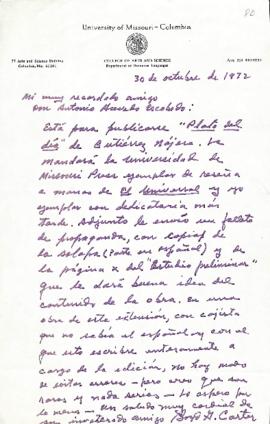 80
University of Missouri - Columbia
27 Arts and Science Building
Columbia, Mo. 65201
COLLEGE OF ARTS AND SCIENCE
Department of Romance Languages
30 de octubre de 1972
Mi muy recordado amigo
Don Antonio Acevedo Escobedo:
Está para publicarse "Plato del
día" de Gutiérrez Nájera. Le
mandará la Universidad de
Missouri Press ejemplar de reseña
a manos de El Universal y yo
ejemplar con dedicatoria más
tarde. Adjunto le envío un folleto
de propaganda, con copias de
la solapa (Parte en español) y de
la página x del "Estudio preliminar"
que le dará buena idea del
contenido de la obra. En una
obra de esta extensión, con cajista
que no sabía el español y con el
que esto escribe enteramente a
cargo de la edición, no hay modo
de evitar errores - pero creo que son
raros y nada serios - lo espero por
lo menos - Un saludo muy cordial de
su inveterado amigo Boyd G. Carter